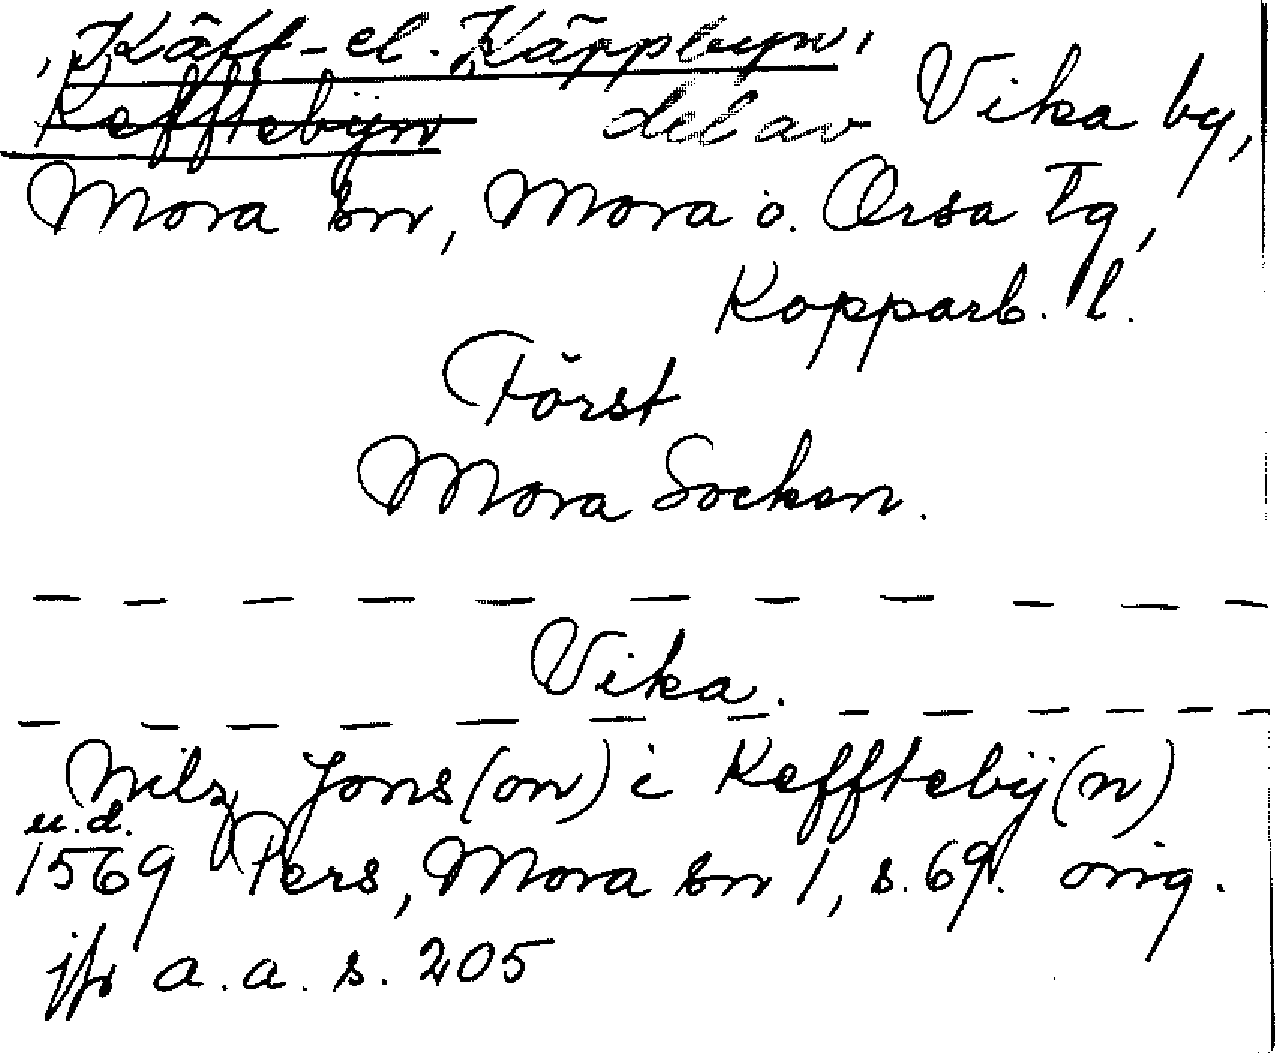 , Käft- el. Käppbyn,
Kefftebÿn del av Vika by,
Mora sn, Mora o. Orsa tg,
Kopparb. l.
Först
Mora Socken.
Vika.
Nilz Jons(on) i Kefftebÿ(n)
u.d.
1569 Pers, Mora sn 1, s. 69. orig.
jfr a.a. s. 205